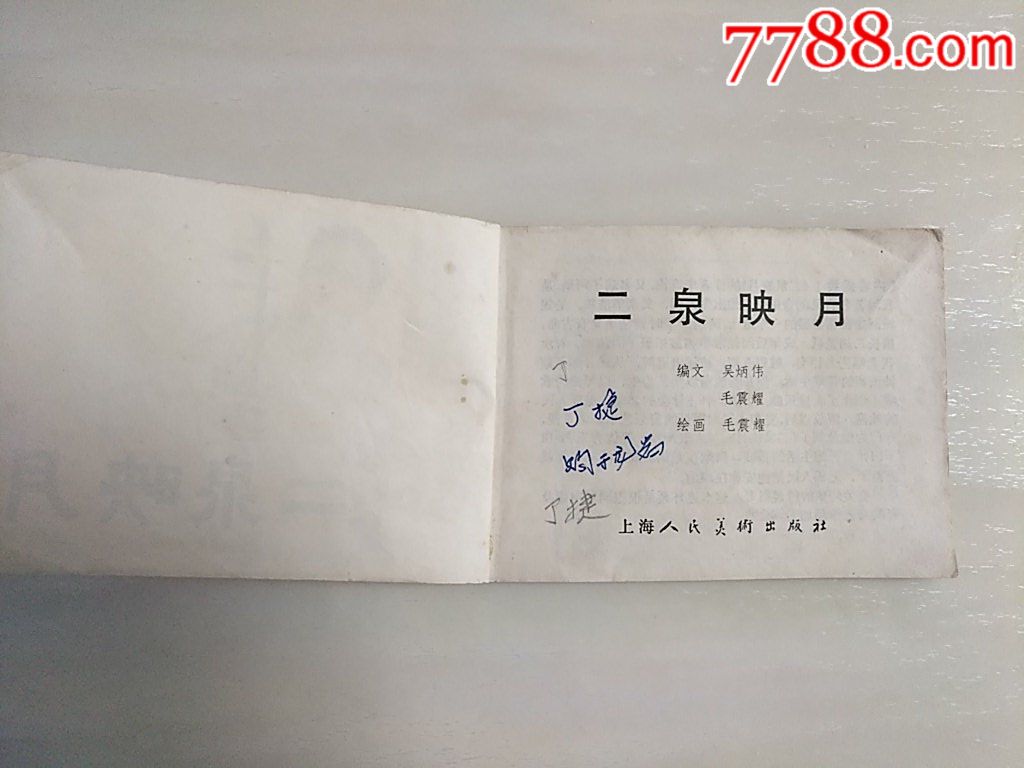 7788.com
二泉映月
编文 吴炳伟
毛震耀
绘画 毛震耀
丁
丁捷
丁捷
上海人民美術出版社